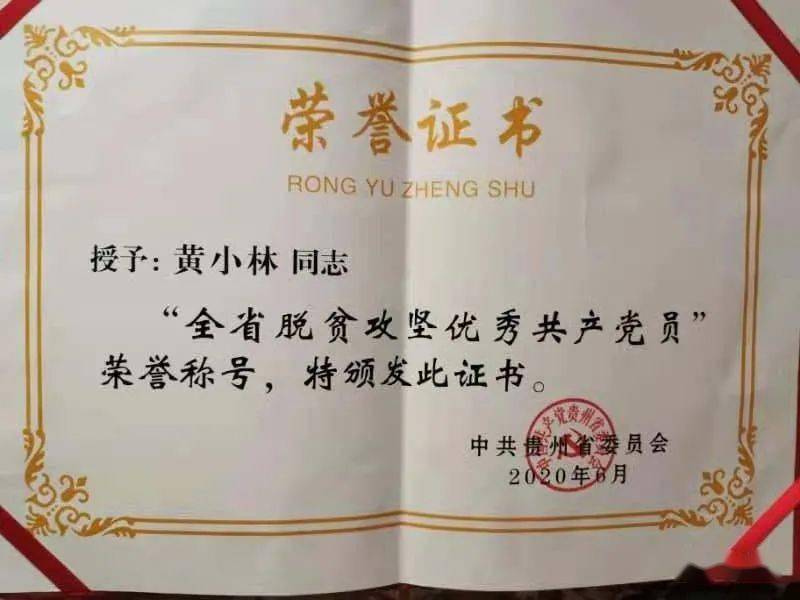 荣誉证书
RONG YU ZHENG SHU
授予：黄小林 同志
“全省脱贫攻坚优秀共产党员”
荣誉称号，特颁发此证书。
中共贵州省委员会
2020年6月
中国共产党贵州省委员会